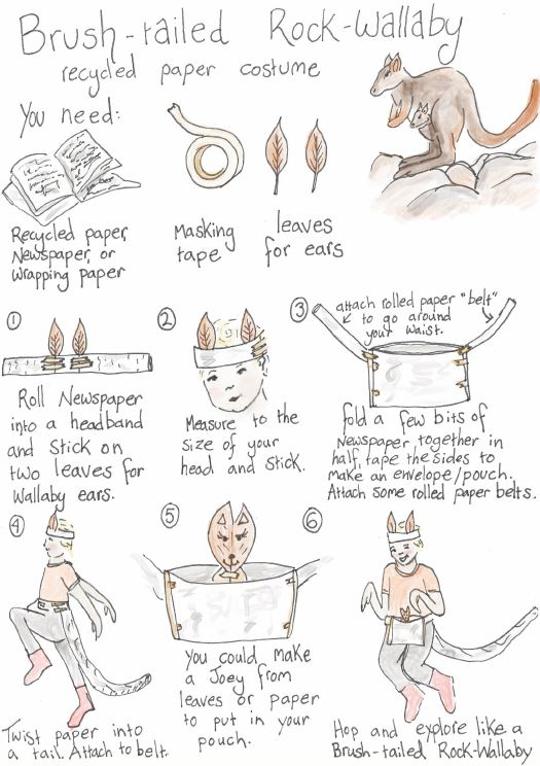 Brush-tailed Rock-Wallaby
recycled paper costume
You need:
Recycled paper,
Newspaper, or
Wrapping paper
Masking
tape
leaves
for ears
①
Roll Newspaper
into a headband
and stick on
two leaves for
Wallaby ears.
②
Measure to the
size of your
head and stick.
③
attach rolled paper "belt"
to go around
your waist.
fold a few bits of
Newspaper together in
half, tape the sides to
make an envelope/pouch.
Attach some rolled paper belts.
④
Twist paper into
a tail. Attach to belt.
⑤
You could make
a Joey from
leaves or paper
to put in your
pouch.
⑥
Hop and explore like a
Brush-tailed Rock-Wallaby